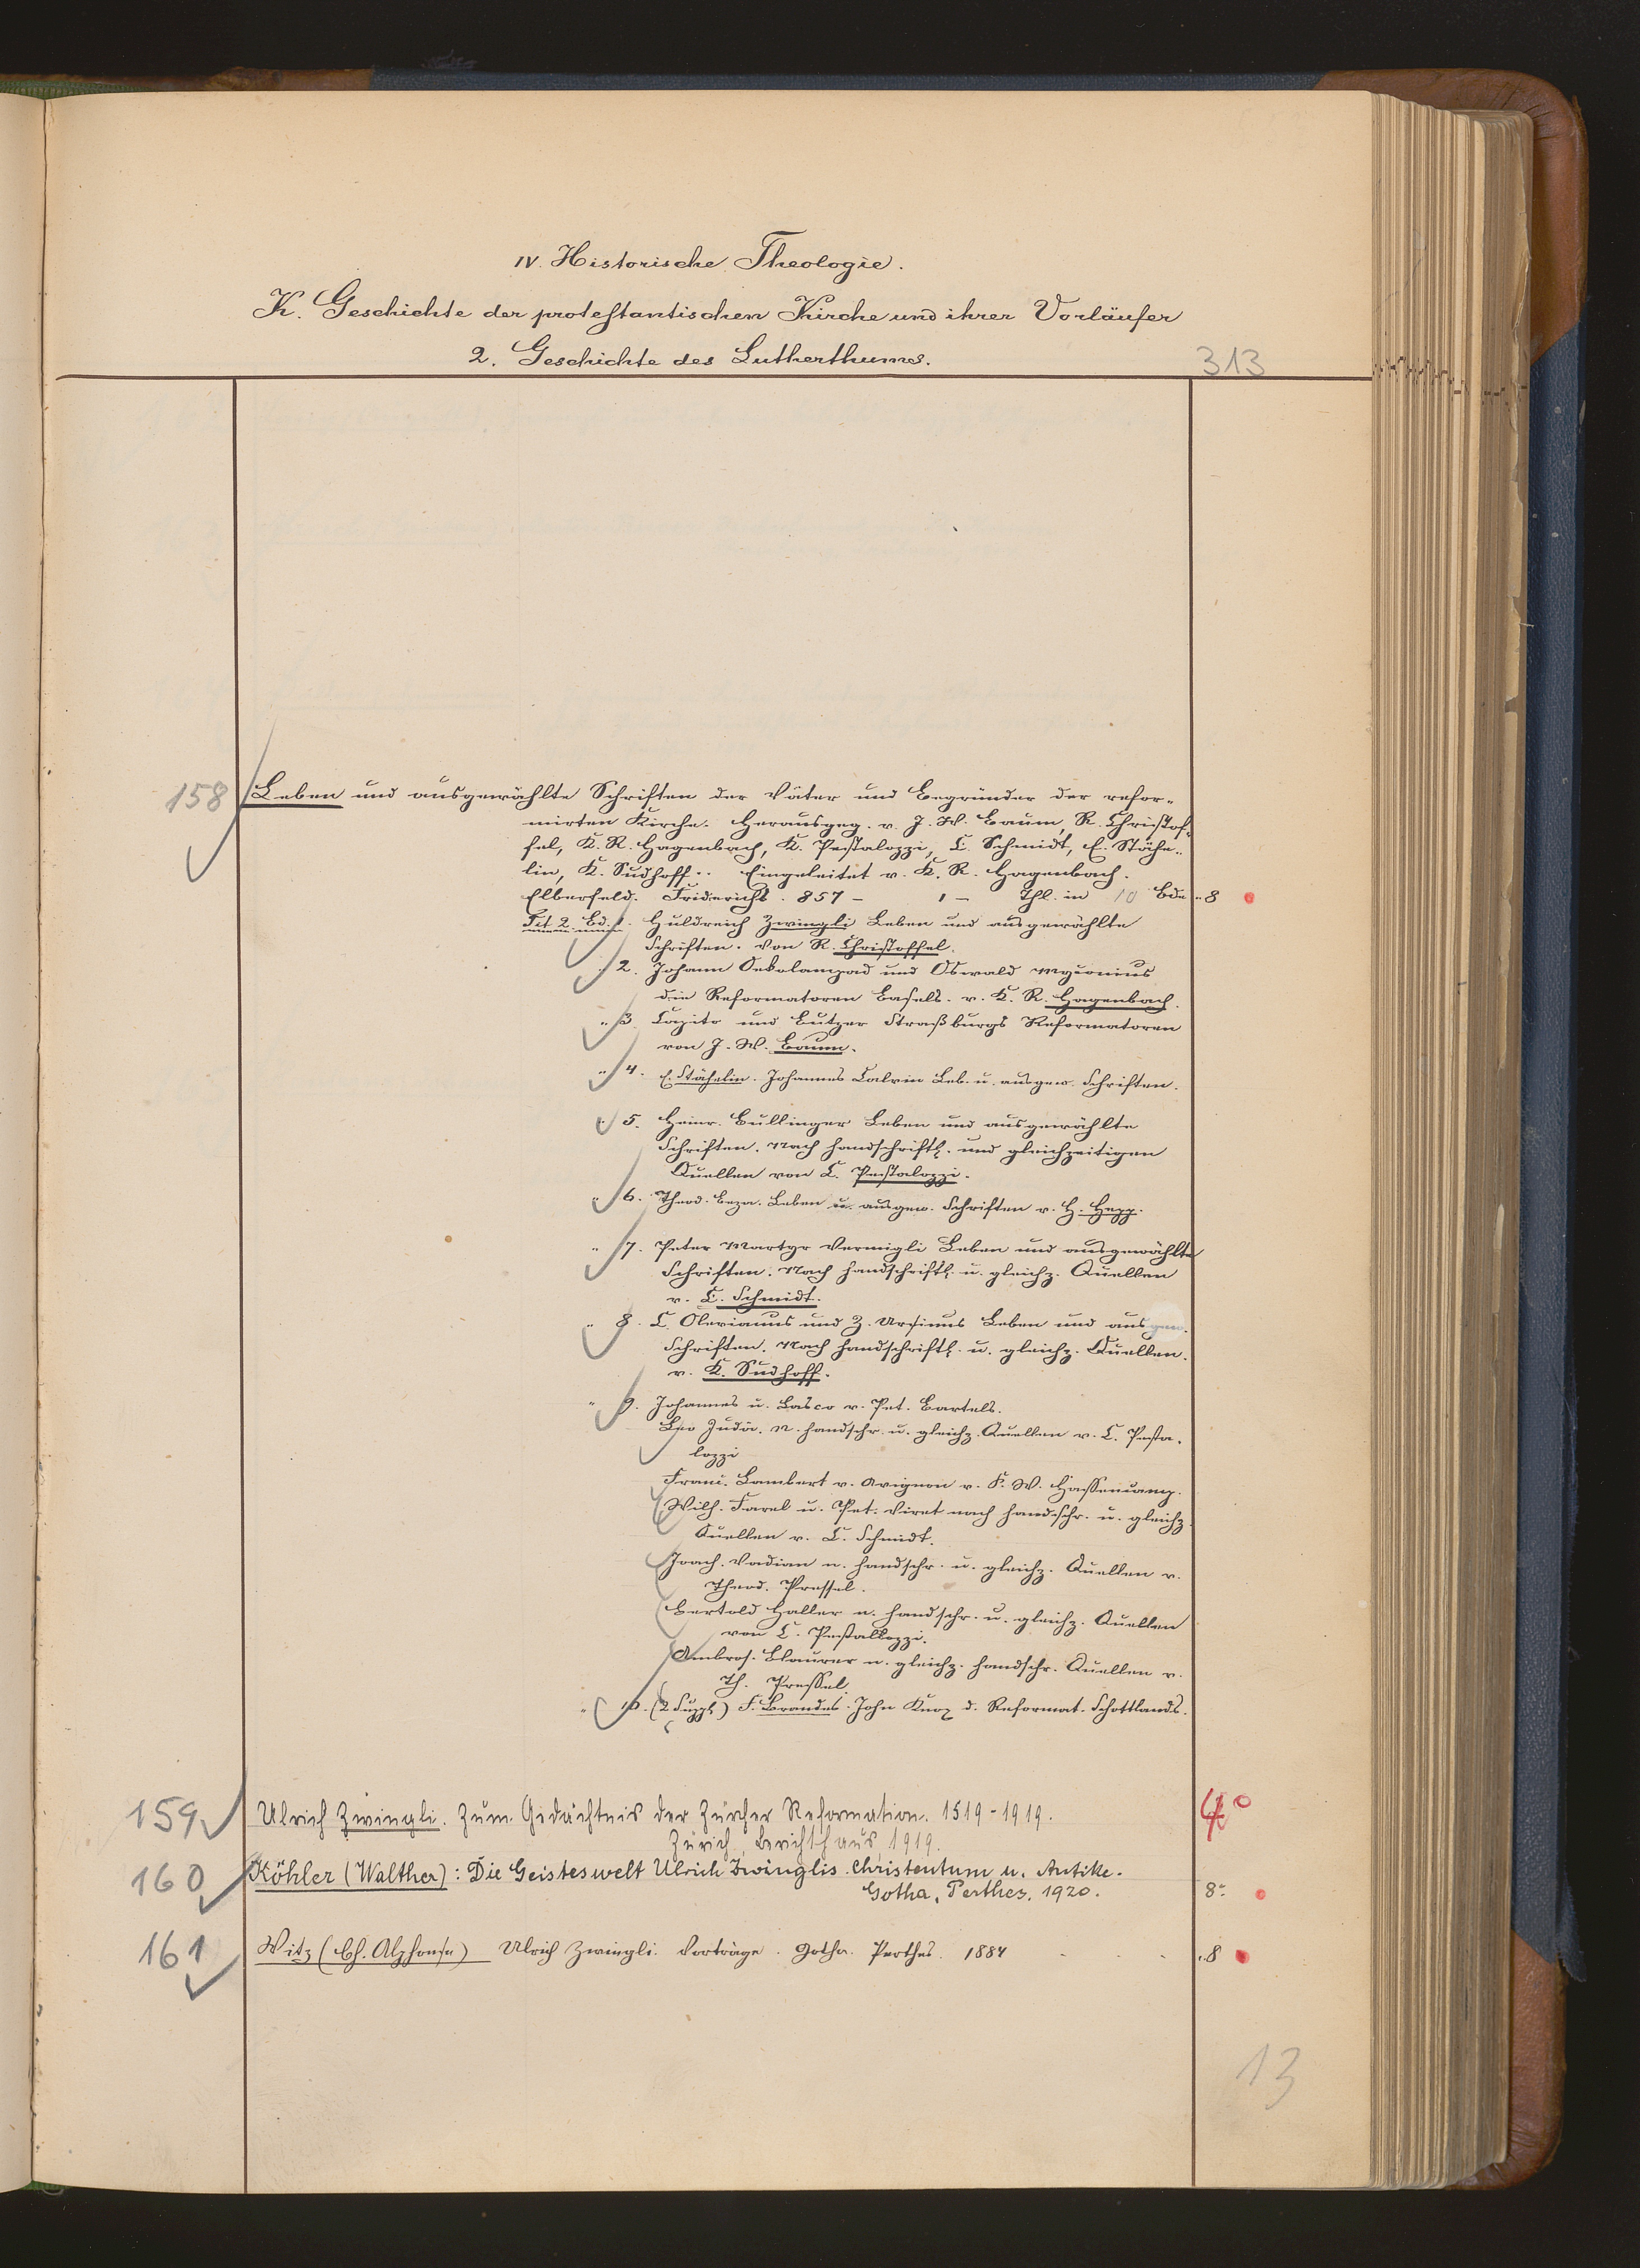 IV. Historische Theologie.
K. Geschichte der protestantischen Kirche und ihrer Vorläufer
2. Geschichte des Lutherthums.
313
158 Leben und ausgewählte Schriften der Väter und Begründer der refor-
mirten Kirche. Herausgeg. v. J. W. Baum, R. Christof-
fel, K. R. Hagenbach, K. Pestalozzi, C. Schmidt, E. Stähe-
lin, K. Sudhoff.. Eingeleitet v. K. R. Hagenbach.
Elberfeld. Friderichs. 857 - 1 - Thl. in 10 Bde „ 8
Tit. 2. Bd. 1. Huldreich Zwingli Leben und ausgewählte
Schriften. von R. Christoffel.
„ 2. Johann Oekolampad und Oswald Myconius
die Reformatoren Basels. v. K. R. Hagenbach.
„ 3. Capito und Butzer Straßburgs Reformatoren
von J. W. Baum.
„ 4. E. Stähelin. Johannes Calvin Leb. u. ausgew. Schriften.
„ 5. Heinr. Bullinger Leben und ausgewählte
Schriften. Nach handschriftl. und gleichzeitigen
Quellen von C. Pestalozzi.
„ 6. Theod. Beza. Leben u. ausgew. Schriften v. H. Hepp.
„ 7. Peter Martyr Vermigli Leben und ausgewählte
Schriften. Nach handschriftl. u. gleichz. Quellen
v. C. Schmidt.
„ 8. C. Olevianus und Z. Ursinus Leben und ausgew.
Schriften. Nach handschriftl. u. gleichz. Quellen.
v. K. Sudhoff.
„ 9. Johannes u. Lasco v. Pet. Bartels.
Leo Judä. n. handschr. u. gleichz. Quellen v. C. Pesta-
lozzi
Franc. Lambert v. Avignon v. F. W. Hassencamp.
Wilh. Farel u. Pet. Viret nach handschr. u. gleichz.
Quellen v. C. Schmidt.
Joach. Vadian n. handschr. u. gleichz. Quellen v.
Theod. Pressel.
Bertold Haller n. handschr. u. gleichz. Quellen
von C. Pestallozzi.
Ambros. Blaurer n. gleichz. handschr. Quellen v.
Th. Pressel.
„ 10. (2 Suppl) F. Brandes. John Knox d. Reformat. Schottlands.
159 Ulrich Zwingli. Zum Gedächtnis der Zürcher Reformation. 1519-1919. 4°
Zürich, Berichthaus, 1919.
160 Köhler (Walther): Die Geisteswelt Ulrich Zwinglis. Christentum u. Antike.
Gotha, Perthes, 1920. 8°
161 Witz (Ch. Alphonse) Ulrich Zwingli. Vorträge. Gotha. Perthes. 1884 „ 8
13